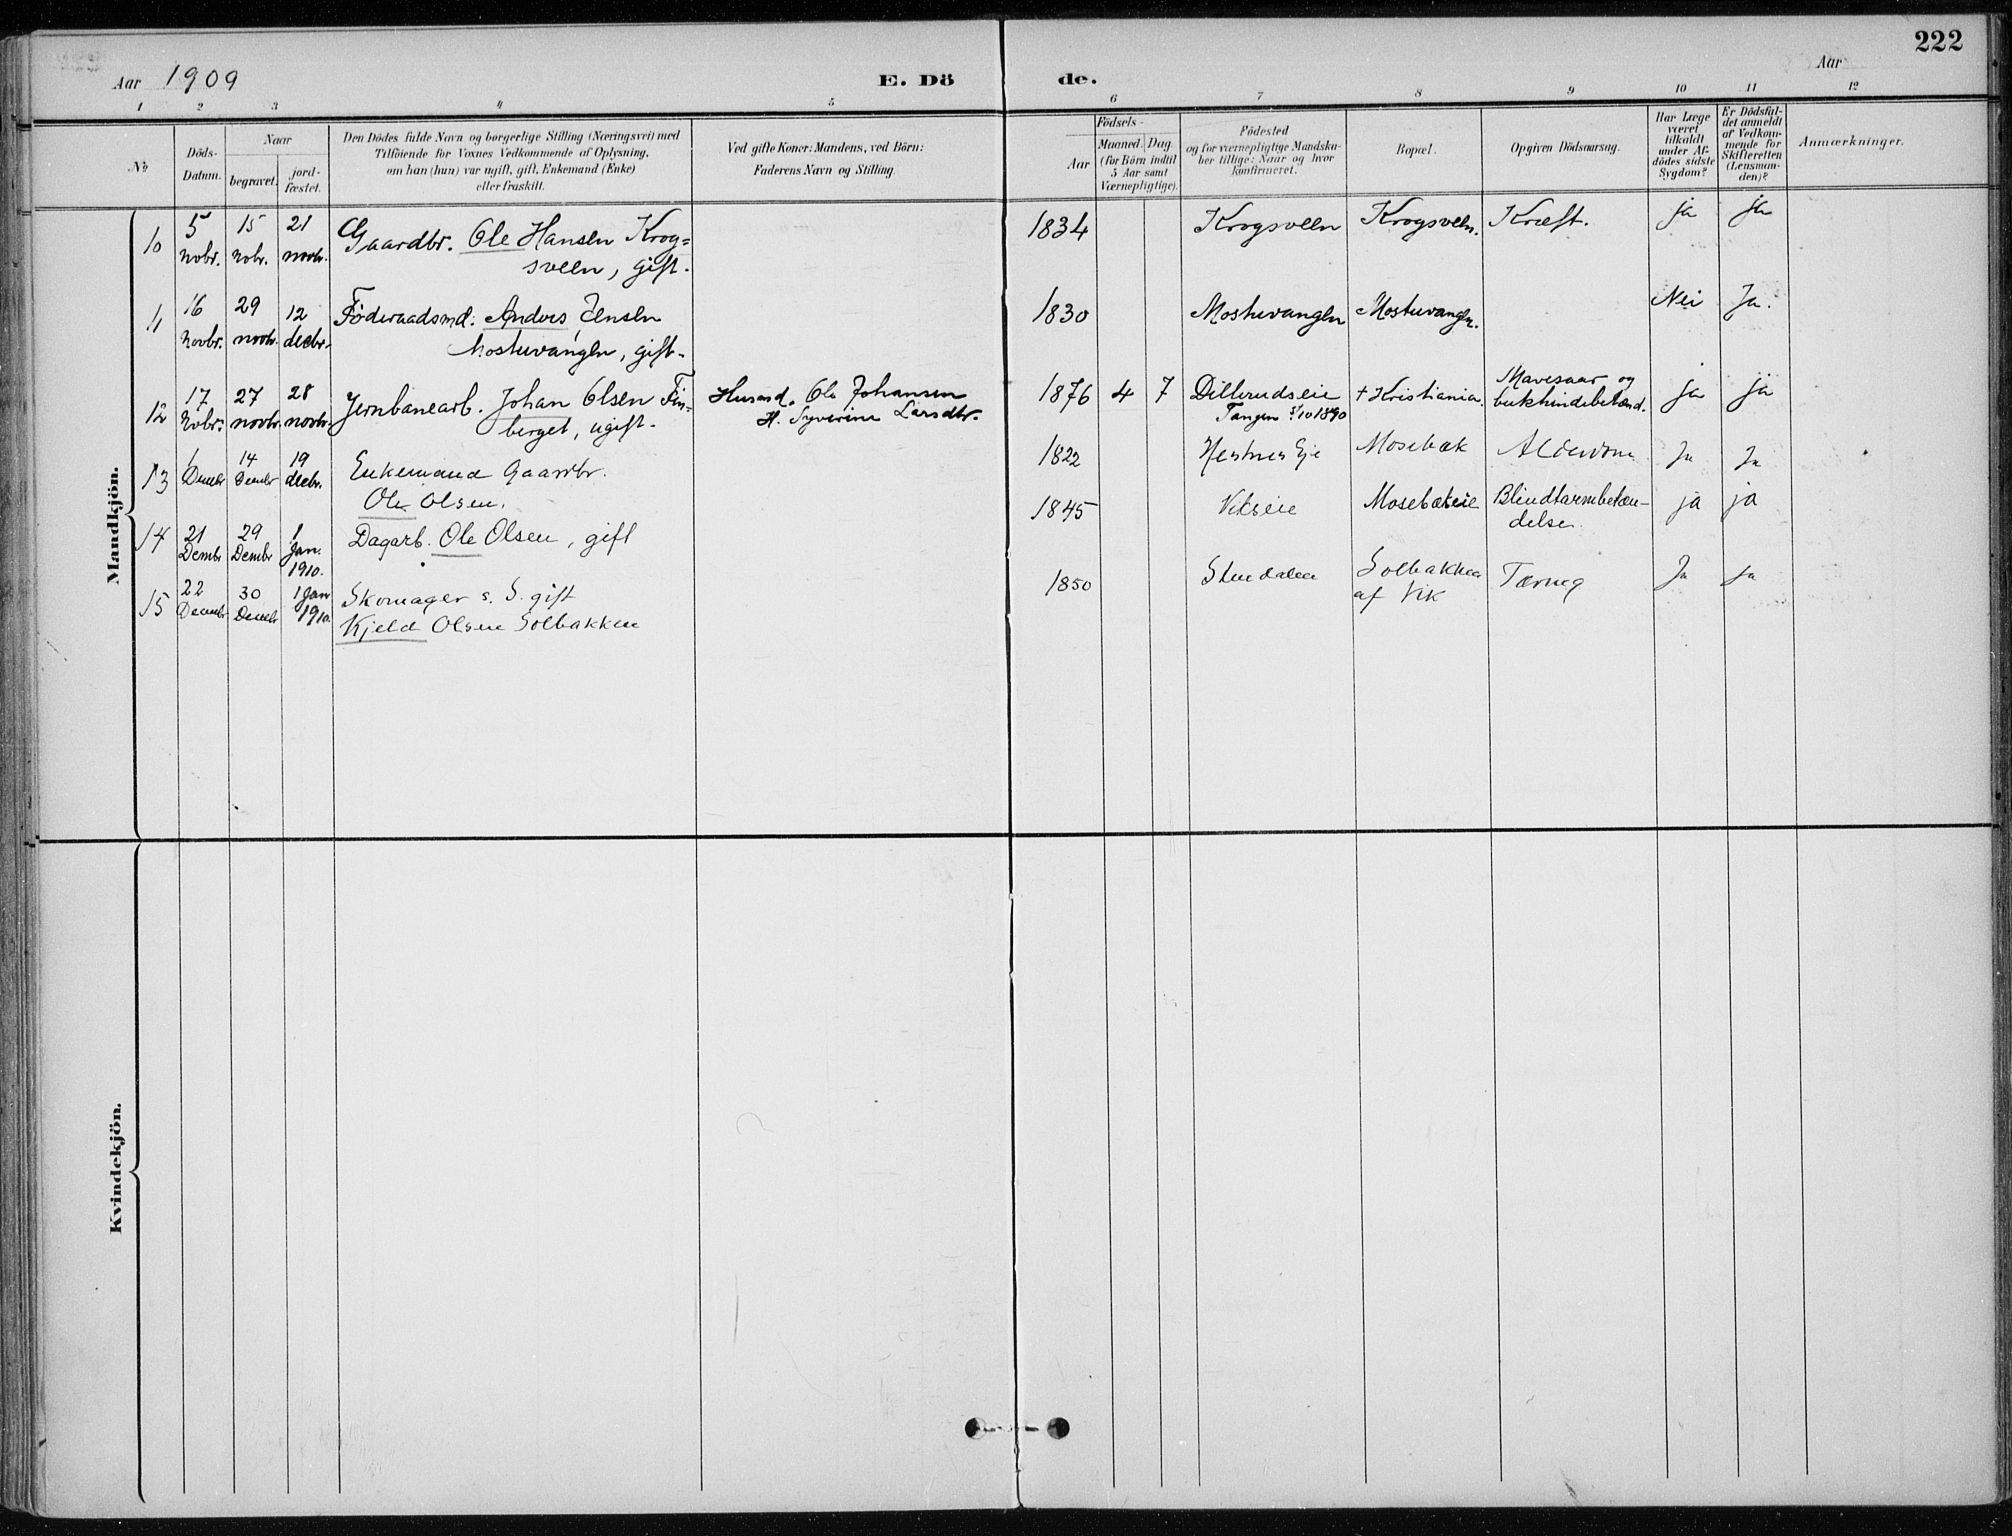 222
Aar 1909
E. Dö de.
Aar
1 2 3 4 5 6 7 8 9 10 11 12
No
Döds-
Datum.
Naar
begravet.
jord-
fæstet.
Den Dödes fulde Navn og borgerlige Stilling (Næringsvei) med
Tilföiende for Voxnes Vedkommende af Oplysning,
om han (hun) var ugift, gift, Enkemand (Enke)
eller fraskilt.
Ved gifte Koner: Mandens, ved Börn:
Faderens Navn og Stilling.
Födsels-
Aar
Maaned. Dag.
(for Börn indtil
5 Aar samt
Værnepligtige).
Födested
og for værnepligtige Mandska-
ber tillige: Naar og hvor
konfirmeret.
Bopæl.
Opgiven Dödsaarsag.
Har Læge
været
tilkaldt
under Af-
dödes sidste
Sygdom?
Er Dödsfal-
det anmeldt
af Vedkom-
mende for
Skifteretten
(Lensman-
den)?
Anmærkninger.
Mandkjön.
10 5 Novbr. 15 Nobr. 21 novbr. Gaardbr. Ole Hansen Krog=
sveen, gift. 1834 Krogsveen Krogsveen. Kræft. ja ja
11 16 Novbr. 29 novbr. 12 decbr. Föderaadsmd. Anders Jensen
Mostuvangen, gift. 1830 Mostuvangen Mostuvangen. Nei Ja.
12 17 Nobr. 27 novbr. 28 novbr. Jernbanearb. Johan Olsen Fin=
berget, ugift. Husmd. Ole Johansen
H. Syverine Larsdtr. 1876 4 7 Dillerudseie
Tangen 5/10 1890 + Kristiania. Mavesaar og
bukhindebetænd. ja ja
13 1 Decmbr 14 Decmbr 19 decbr. Enkemand Gaardbr.
Ole Olsen. 1822 Hestnes Eje Mosebæk Alderdom Ja Ja
14 21 Dembr 29 Dembr 1 Jan. 1910. Dagarb. Ole Olsen, gift 1845 Vikseie Mosebækeie Blindtarmbetæn-
delse ja ja
15 22 Decmbr 30 Decmbr 1 Jan 1910. Skomager s. S. gift
Kjeld Olsen Solbakken 1850 Stendalen Solbakken
af Vik Tæring Ja ja
Kvindekjön.